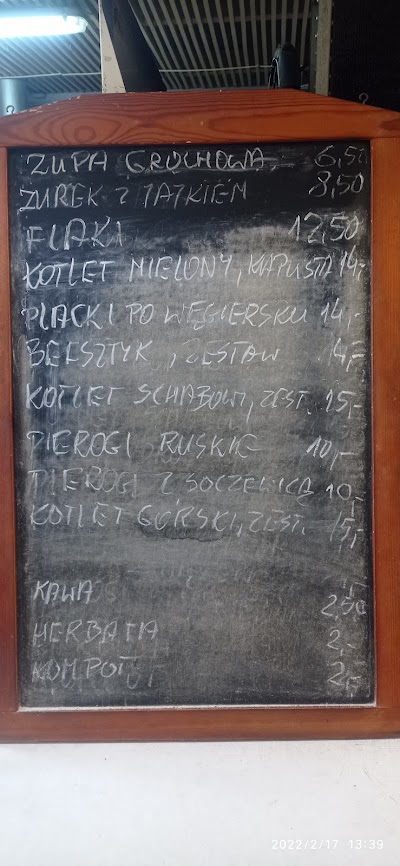 ZUPA GROCHOWA 6,50
ŻUREK Z JAJKIEM 8,50
FLAKI 12,50
KOTLET MIELONY, KAPUSTA 14,-
PLACKI PO WĘGIERSKU 14,-
BEFSZTYK, ZESTAW 14,-
KOTLET SCHABOWY, ZEST. 15,-
PIEROGI RUSKIE 10,-
PIEROGI Z SOCZEWICĄ 10,-
KOTLET GÓRSKI, ZEST. 15,-
KAWA 2,50
HERBATA 2,-
KOMPOT 2,-
2022/2/17 13:39